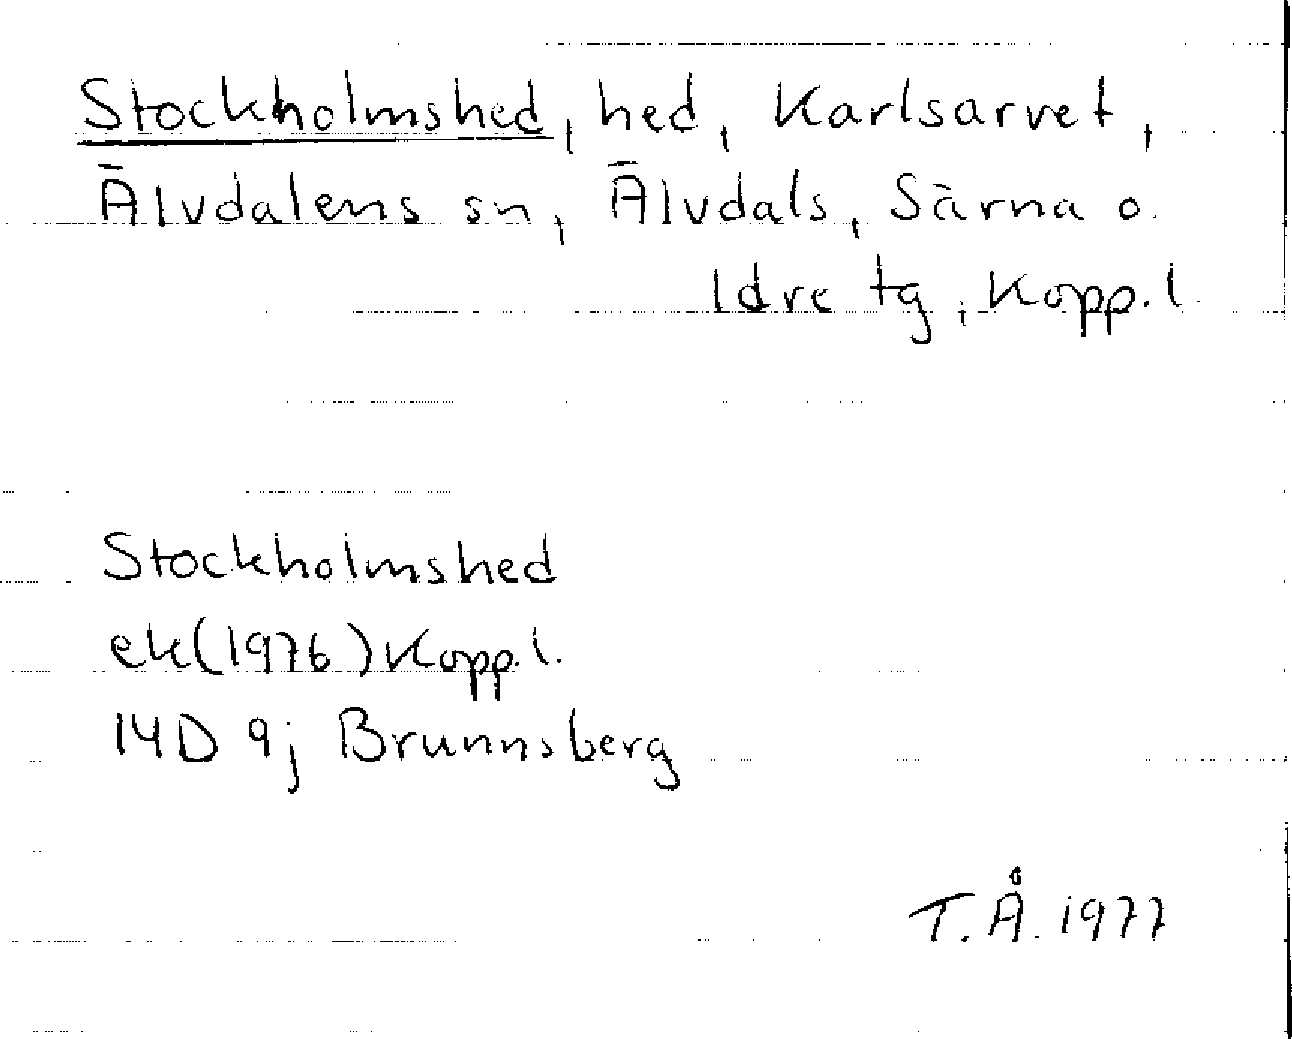 Stockholmshed, hed, Karlsarvet,
Älvdalens sn, Älvdals, Särna o.
Idre tg, Kopp. l.
Stockholmshed
ek(1976) Kopp. l.
14D 9j Brunnsberg
T. Å. 1977